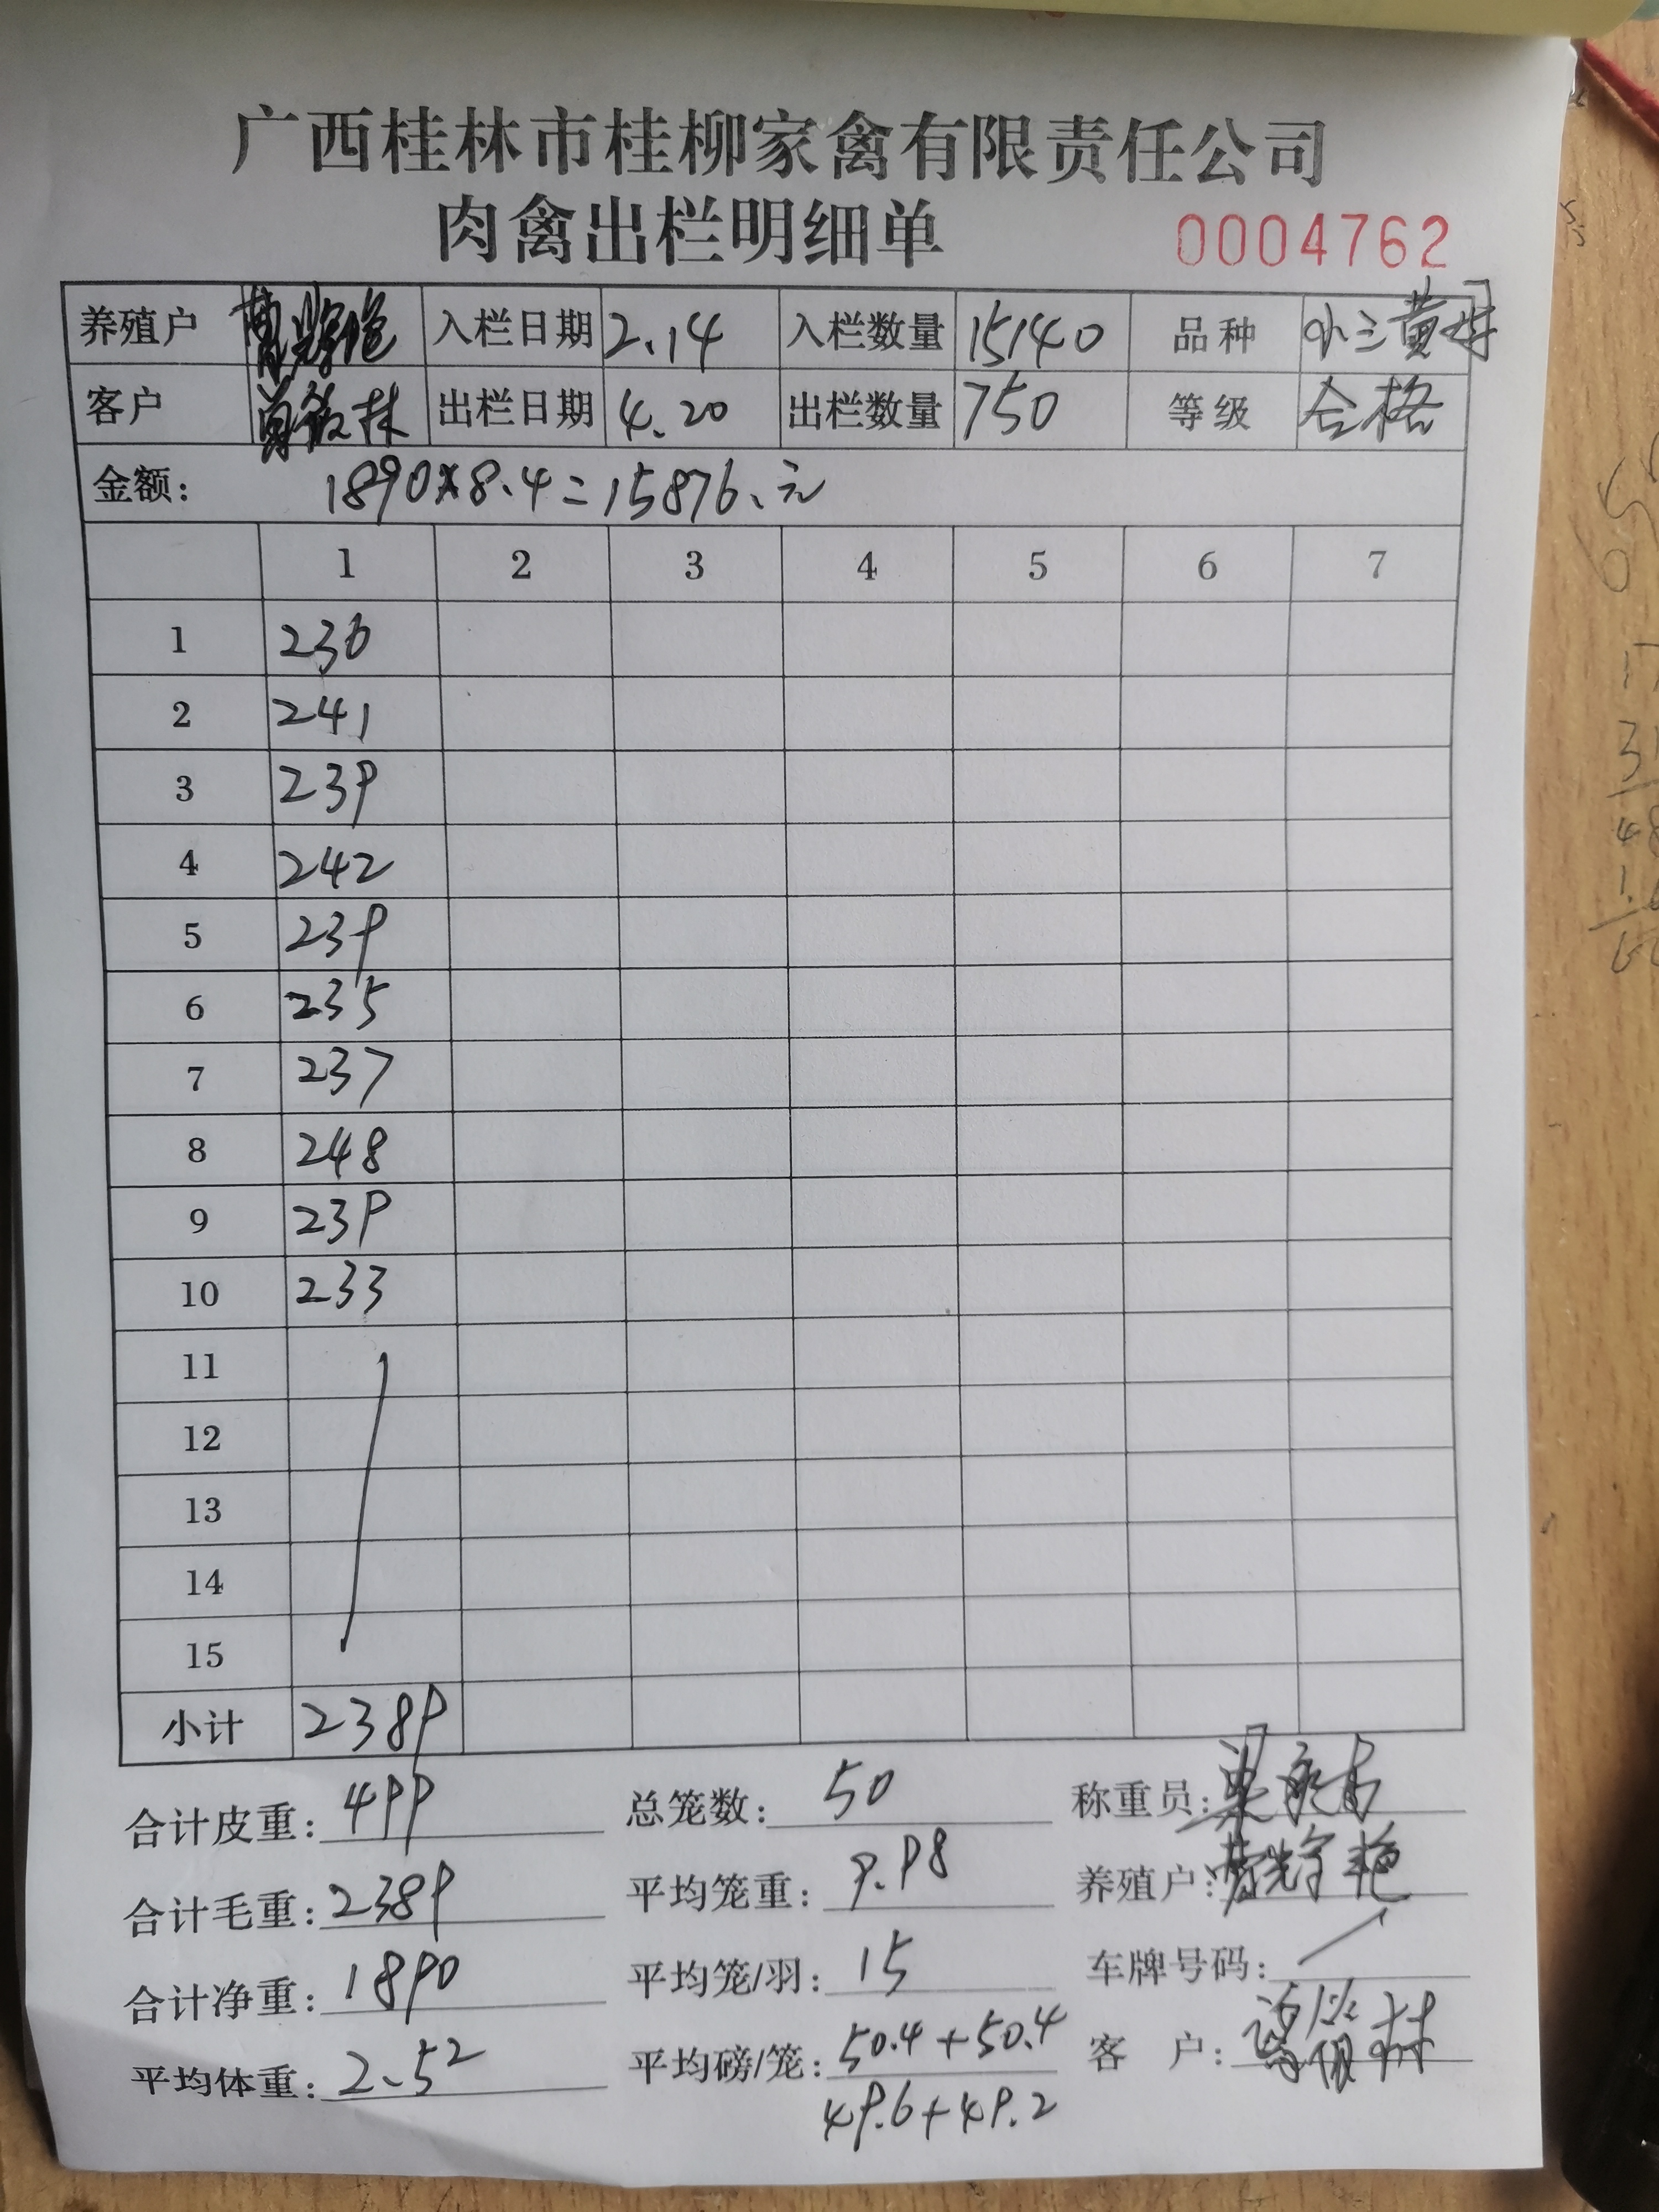 广西桂林市桂柳家禽有限责任公司
肉禽出栏明细单 0004762
养殖户 入栏日期 2.14 入栏数量 15140 品种 小三黄
客户 林 出栏日期 4.20 出栏数量 750 等级 合格
金额： 1890×8.4=15876.元
1 2 3 4 5 6 7
1 236
2 241
3 239
4 242
5 239
6 235
7 237
8 248
9 239
10 233
11
12
13
14
15
小计 2389
合计皮重： 499 总笼数： 50 称重员：
合计毛重： 2389 平均笼重： 9.98 养殖户：
合计净重： 1890 平均笼/羽： 15 车牌号码：
平均体重： 2.52 平均磅/笼： 50.4+50.4 客 户： 林
49.6+49.2